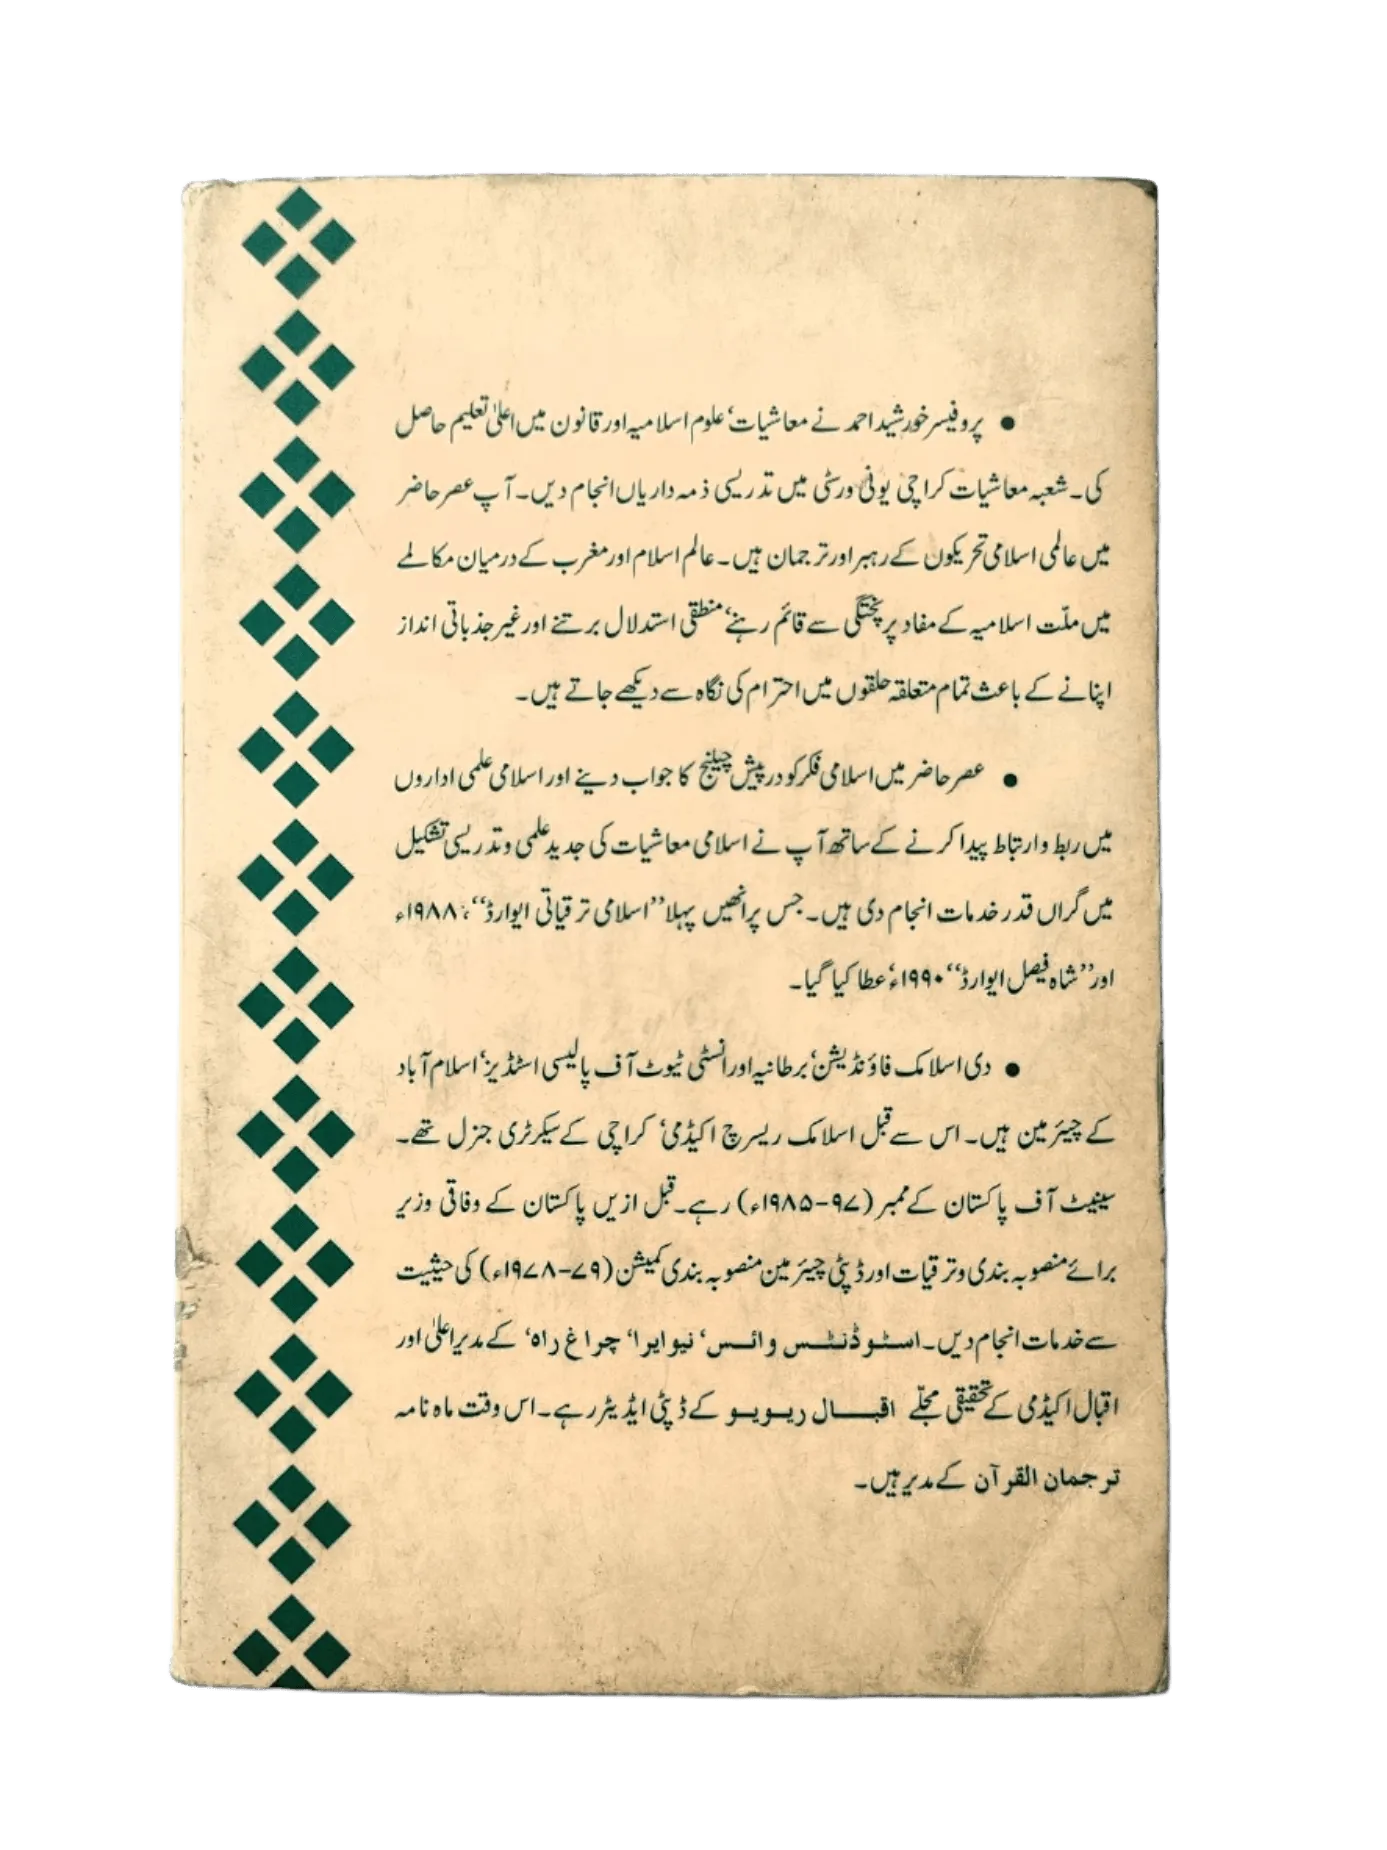 ● پروفیسر خورشید احمد نے معاشیات‘ علوم اسلامیہ اور قانون میں اعلیٰ تعلیم حاصل
کی۔ شعبہ معاشیات کراچی یونی ورسٹی میں تدریسی ذمہ داریاں انجام دیں۔ آپ عصر حاضر
میں عالمی اسلامی تحریکوں کے رہبر اور ترجمان ہیں۔ عالم اسلام اور مغرب کے درمیان مکالمے
میں ملّت اسلامیہ کے مفاد پر پختگی سے قائم رہنے‘ منطقی استدلال برتنے اور غیر جذباتی انداز
اپنانے کے باعث تمام متعلقہ حلقوں میں احترام کی نگاہ سے دیکھے جاتے ہیں۔
● عصر حاضر میں اسلامی فکر کو درپیش چیلنج کا جواب دینے اور اسلامی علمی اداروں
میں ربط و ارتباط پیدا کرنے کے ساتھ آپ نے اسلامی معاشیات کی جدید علمی و تدریسی تشکیل
میں گراں قدر خدمات انجام دی ہیں۔ جس پر انھیں پہلا ’’اسلامی ترقیاتی ایوارڈ‘‘، ۱۹۸۸ء
اور ’’شاہ فیصل ایوارڈ‘‘ ۱۹۹۰ء‘ عطا کیا گیا۔
● دی اسلامک فاؤنڈیشن‘ برطانیہ اور انسٹی ٹیوٹ آف پالیسی اسٹڈیز‘ اسلام آباد
کے چیئرمین ہیں۔ اس سے قبل اسلامک ریسرچ اکیڈمی‘ کراچی کے سیکرٹری جنرل تھے۔
سینیٹ آف پاکستان کے ممبر (۹۷-۱۹۸۵ء) رہے۔ قبل ازیں پاکستان کے وفاقی وزیر
برائے منصوبہ بندی و ترقیات اور ڈپٹی چیئرمین منصوبہ بندی کمیشن (۷۹-۱۹۷۸ء) کی حیثیت
سے خدمات انجام دیں۔ اسٹوڈنٹس وائس‘ نیو ایرا‘ چراغ راہ‘ کے مدیر اعلیٰ اور
اقبال اکیڈمی کے تحقیقی مجلّے اقبال ریویو کے ڈپٹی ایڈیٹر رہے۔ اس وقت ماہ نامہ
ترجمان القرآن کے مدیر ہیں۔